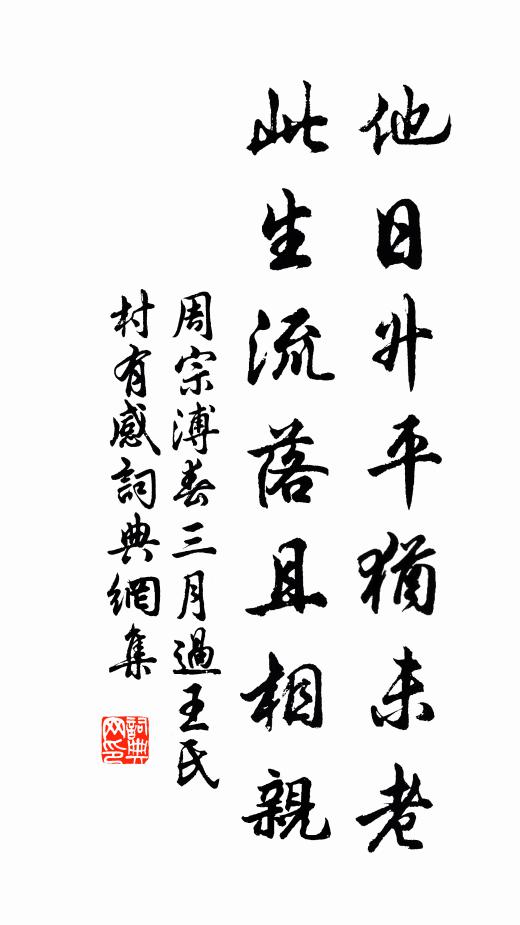 他日升平猶未老
此生流落且相親
周宗溥春三月過王氏
村有感詞典網集
詞典
网印